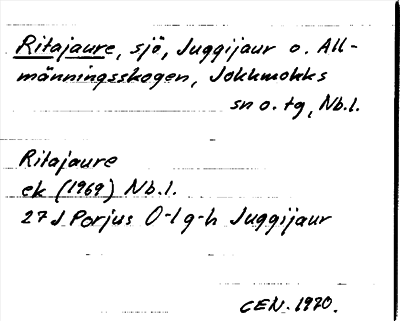 Ritajaure, sjö, Juggijaur o. All-
männingsskogen, Jokkmokks
sn o. tg, Nb.l.
Ritajaure
ek (1969) Nb.l.
27J Porjus 0-1 g-h Juggijaur
CEN. 1970.